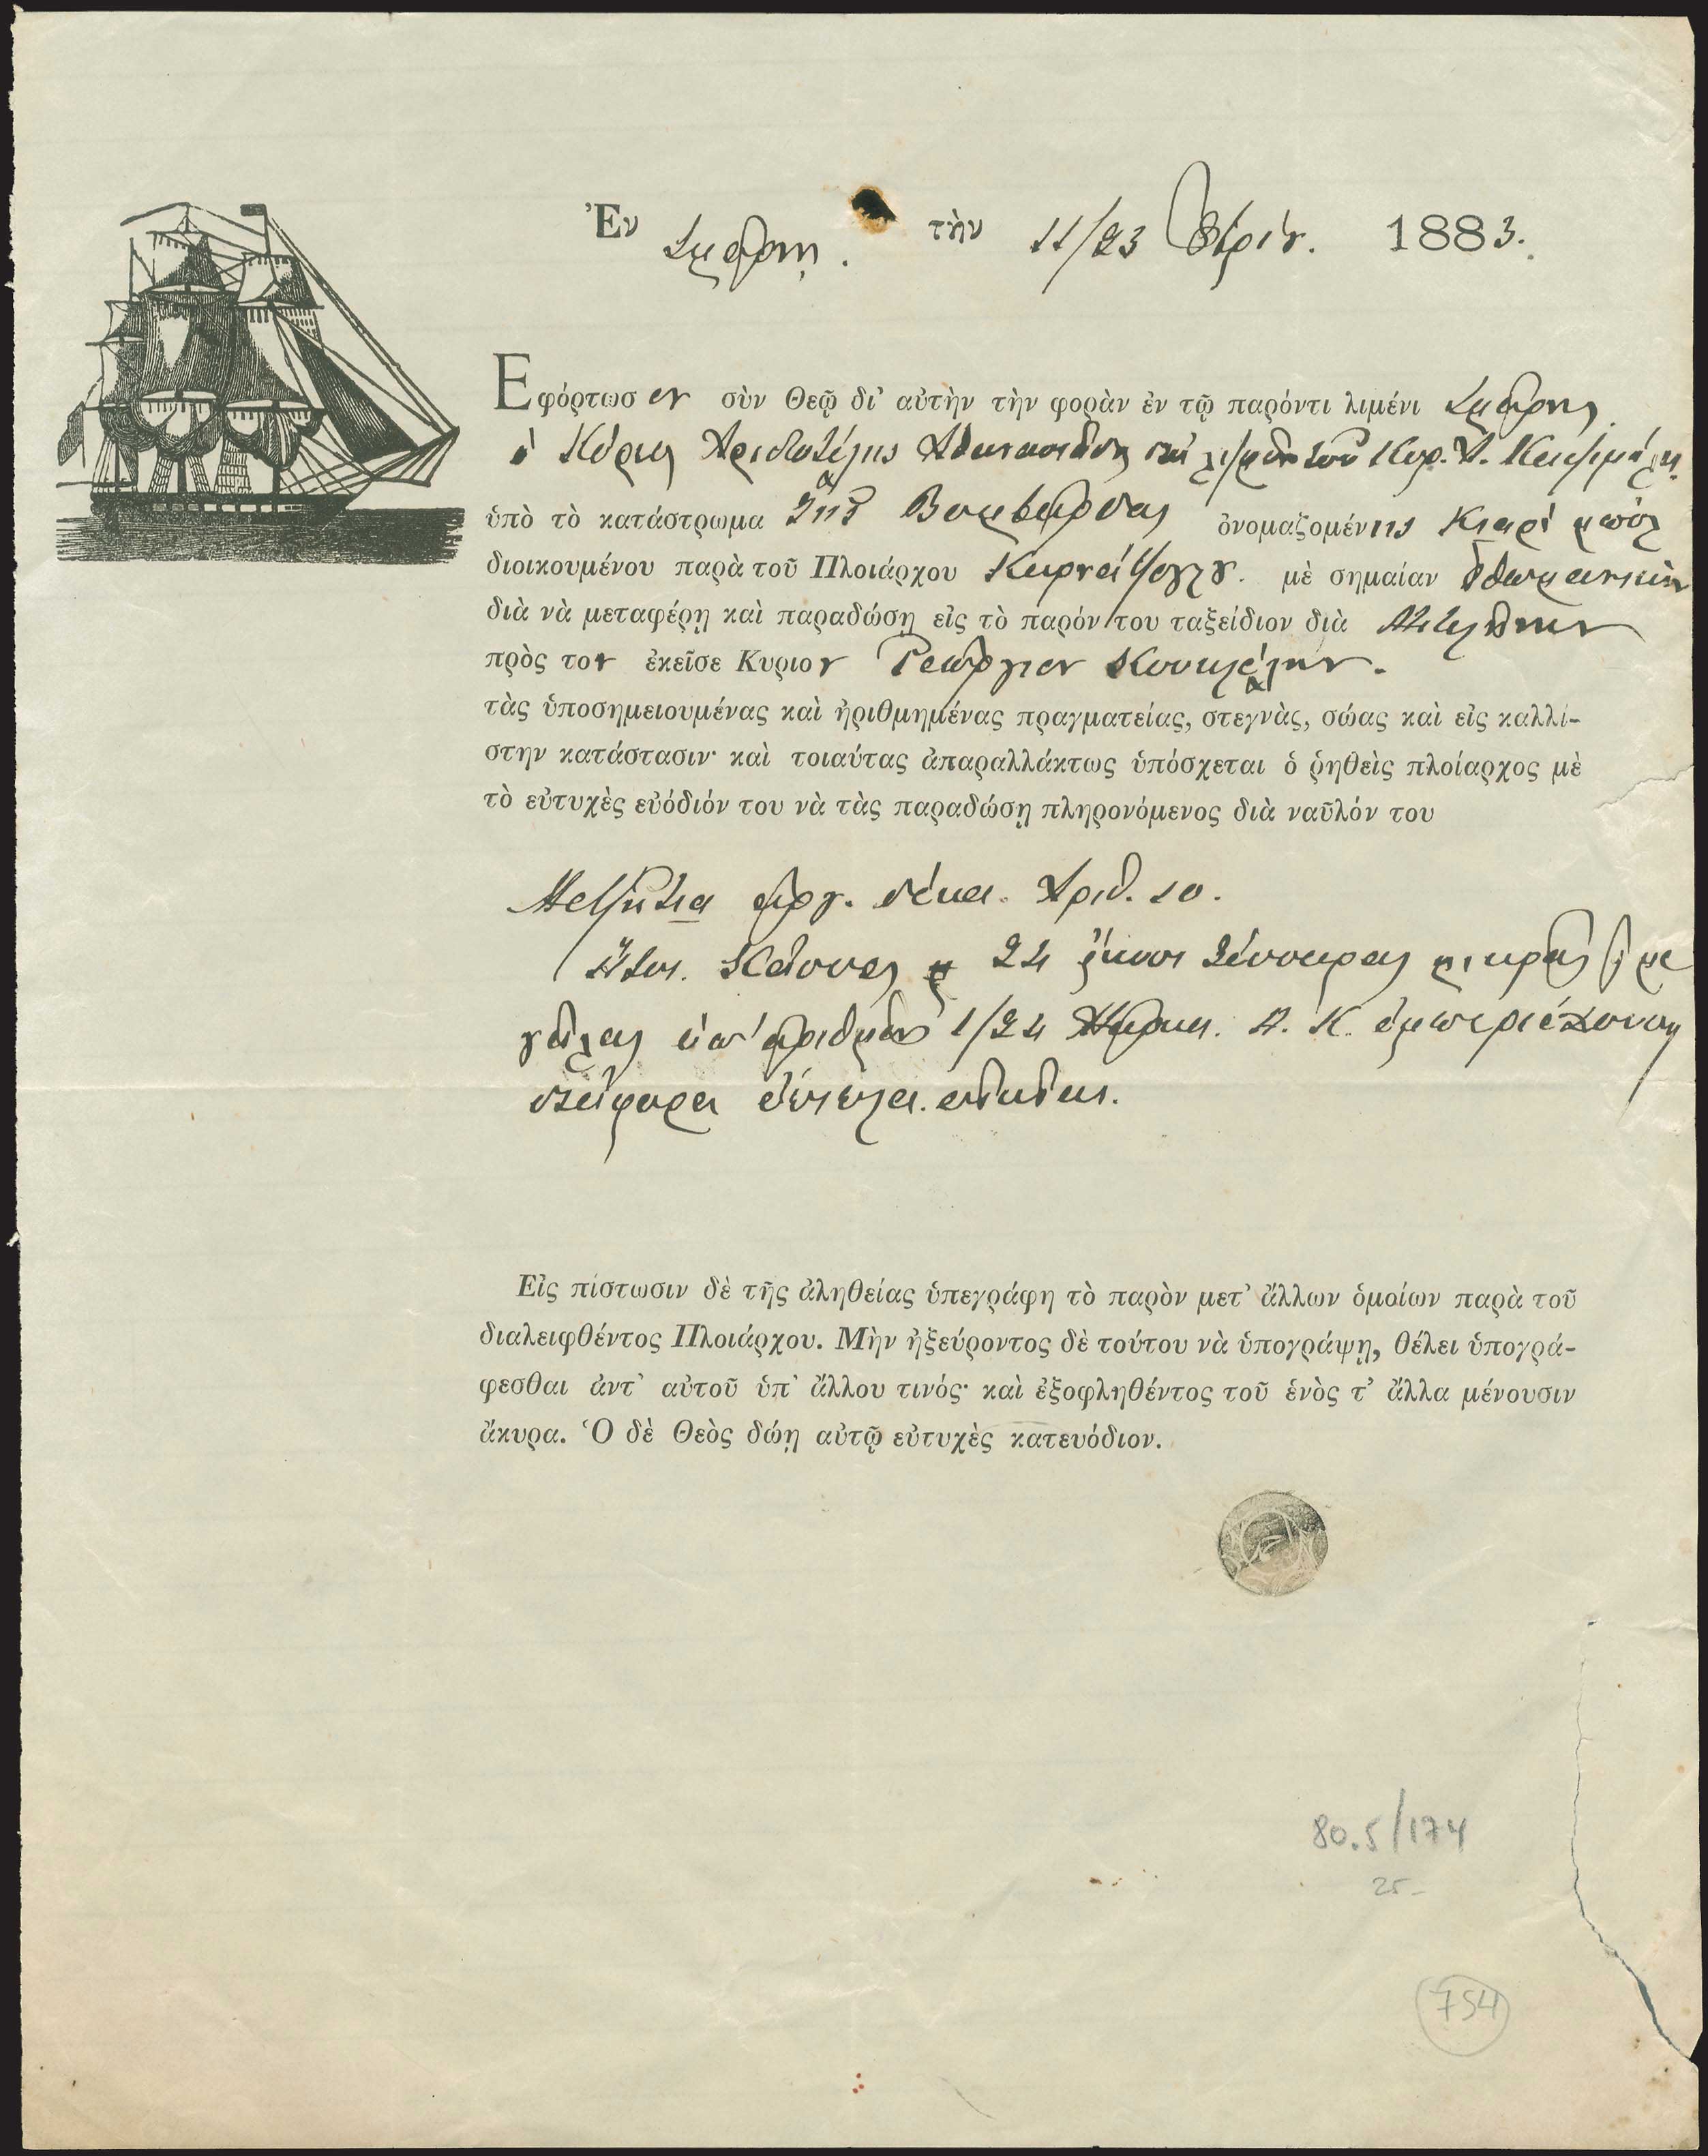 Ἐν Σμύρνῃ. τὴν 11/23 8βρίου. 1883.
Εφόρτωσεν σὺν Θεῷ δι' αὐτὴν τὴν φορὰν ἐν τῷ παρόντι λιμένι Σμύρνης
ὁ Κύριος Ἀριστοτέλης Ἀθανασιάδης διὰ λ/σμὸν τοῦ Κυρ. Α.
ὑπὸ τὸ κατάστρωμα τῆς Βομβάρδας ὀνομαζομένης
διοικουμένου παρὰ τοῦ Πλοιάρχου μὲ σημαίαν Ὀθωμανικὴν
διὰ νὰ μεταφέρῃ καὶ παραδώσῃ εἰς τὸ παρόν του ταξείδιον διὰ Μιτυλήνην
πρὸς τον ἐκεῖσε Κυριον Γεώργιον
τὰς ὑποσημειουμένας καὶ ἠριθμημένας πραγματείας, στεγνὰς, σώας καὶ εἰς καλλί-
στην κατάστασιν· καὶ τοιαύτας ἀπαραλλάκτως ὑπόσχεται ὁ ῥηθεὶς πλοίαρχος μὲ
τὸ εὐτυχὲς εὐόδιόν του νὰ τὰς παραδώσῃ πληρονόμενος διὰ ναῦλόν του
Μετζήτια ἀργ. δέκα. Ἀριθ. 10.
Ἤτοι. Κάσσας 24 εἴκοσι τέσσαρας μικρὰς μὲ
γάλας ὑπ' ἀριθμὸν 1/24 Μάρκα. Α. Κ. ἐμπεριέχουσας
διάφορα
Εἰς πίστωσιν δὲ τῆς ἀληθείας ὑπεγράφη τὸ παρὸν μετ' ἄλλων ὁμοίων παρὰ τοῦ
διαλειφθέντος Πλοιάρχου. Μὴν ἠξεύροντος δὲ τούτου νὰ ὑπογράψῃ, θέλει ὑπογρά-
φεσθαι ἀντ' αὐτοῦ ὑπ' ἄλλου τινός· καὶ ἐξοφληθέντος τοῦ ἑνὸς τ' ἄλλα μένουσιν
ἄκυρα. Ὁ δὲ Θεὸς δώῃ αὐτῷ εὐτυχὲς κατευόδιον.
80.5/174
25-
754